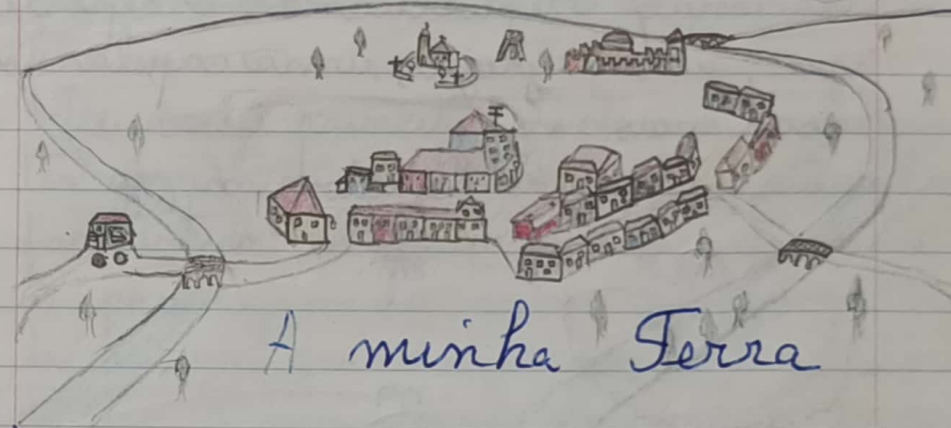 A minha Terra